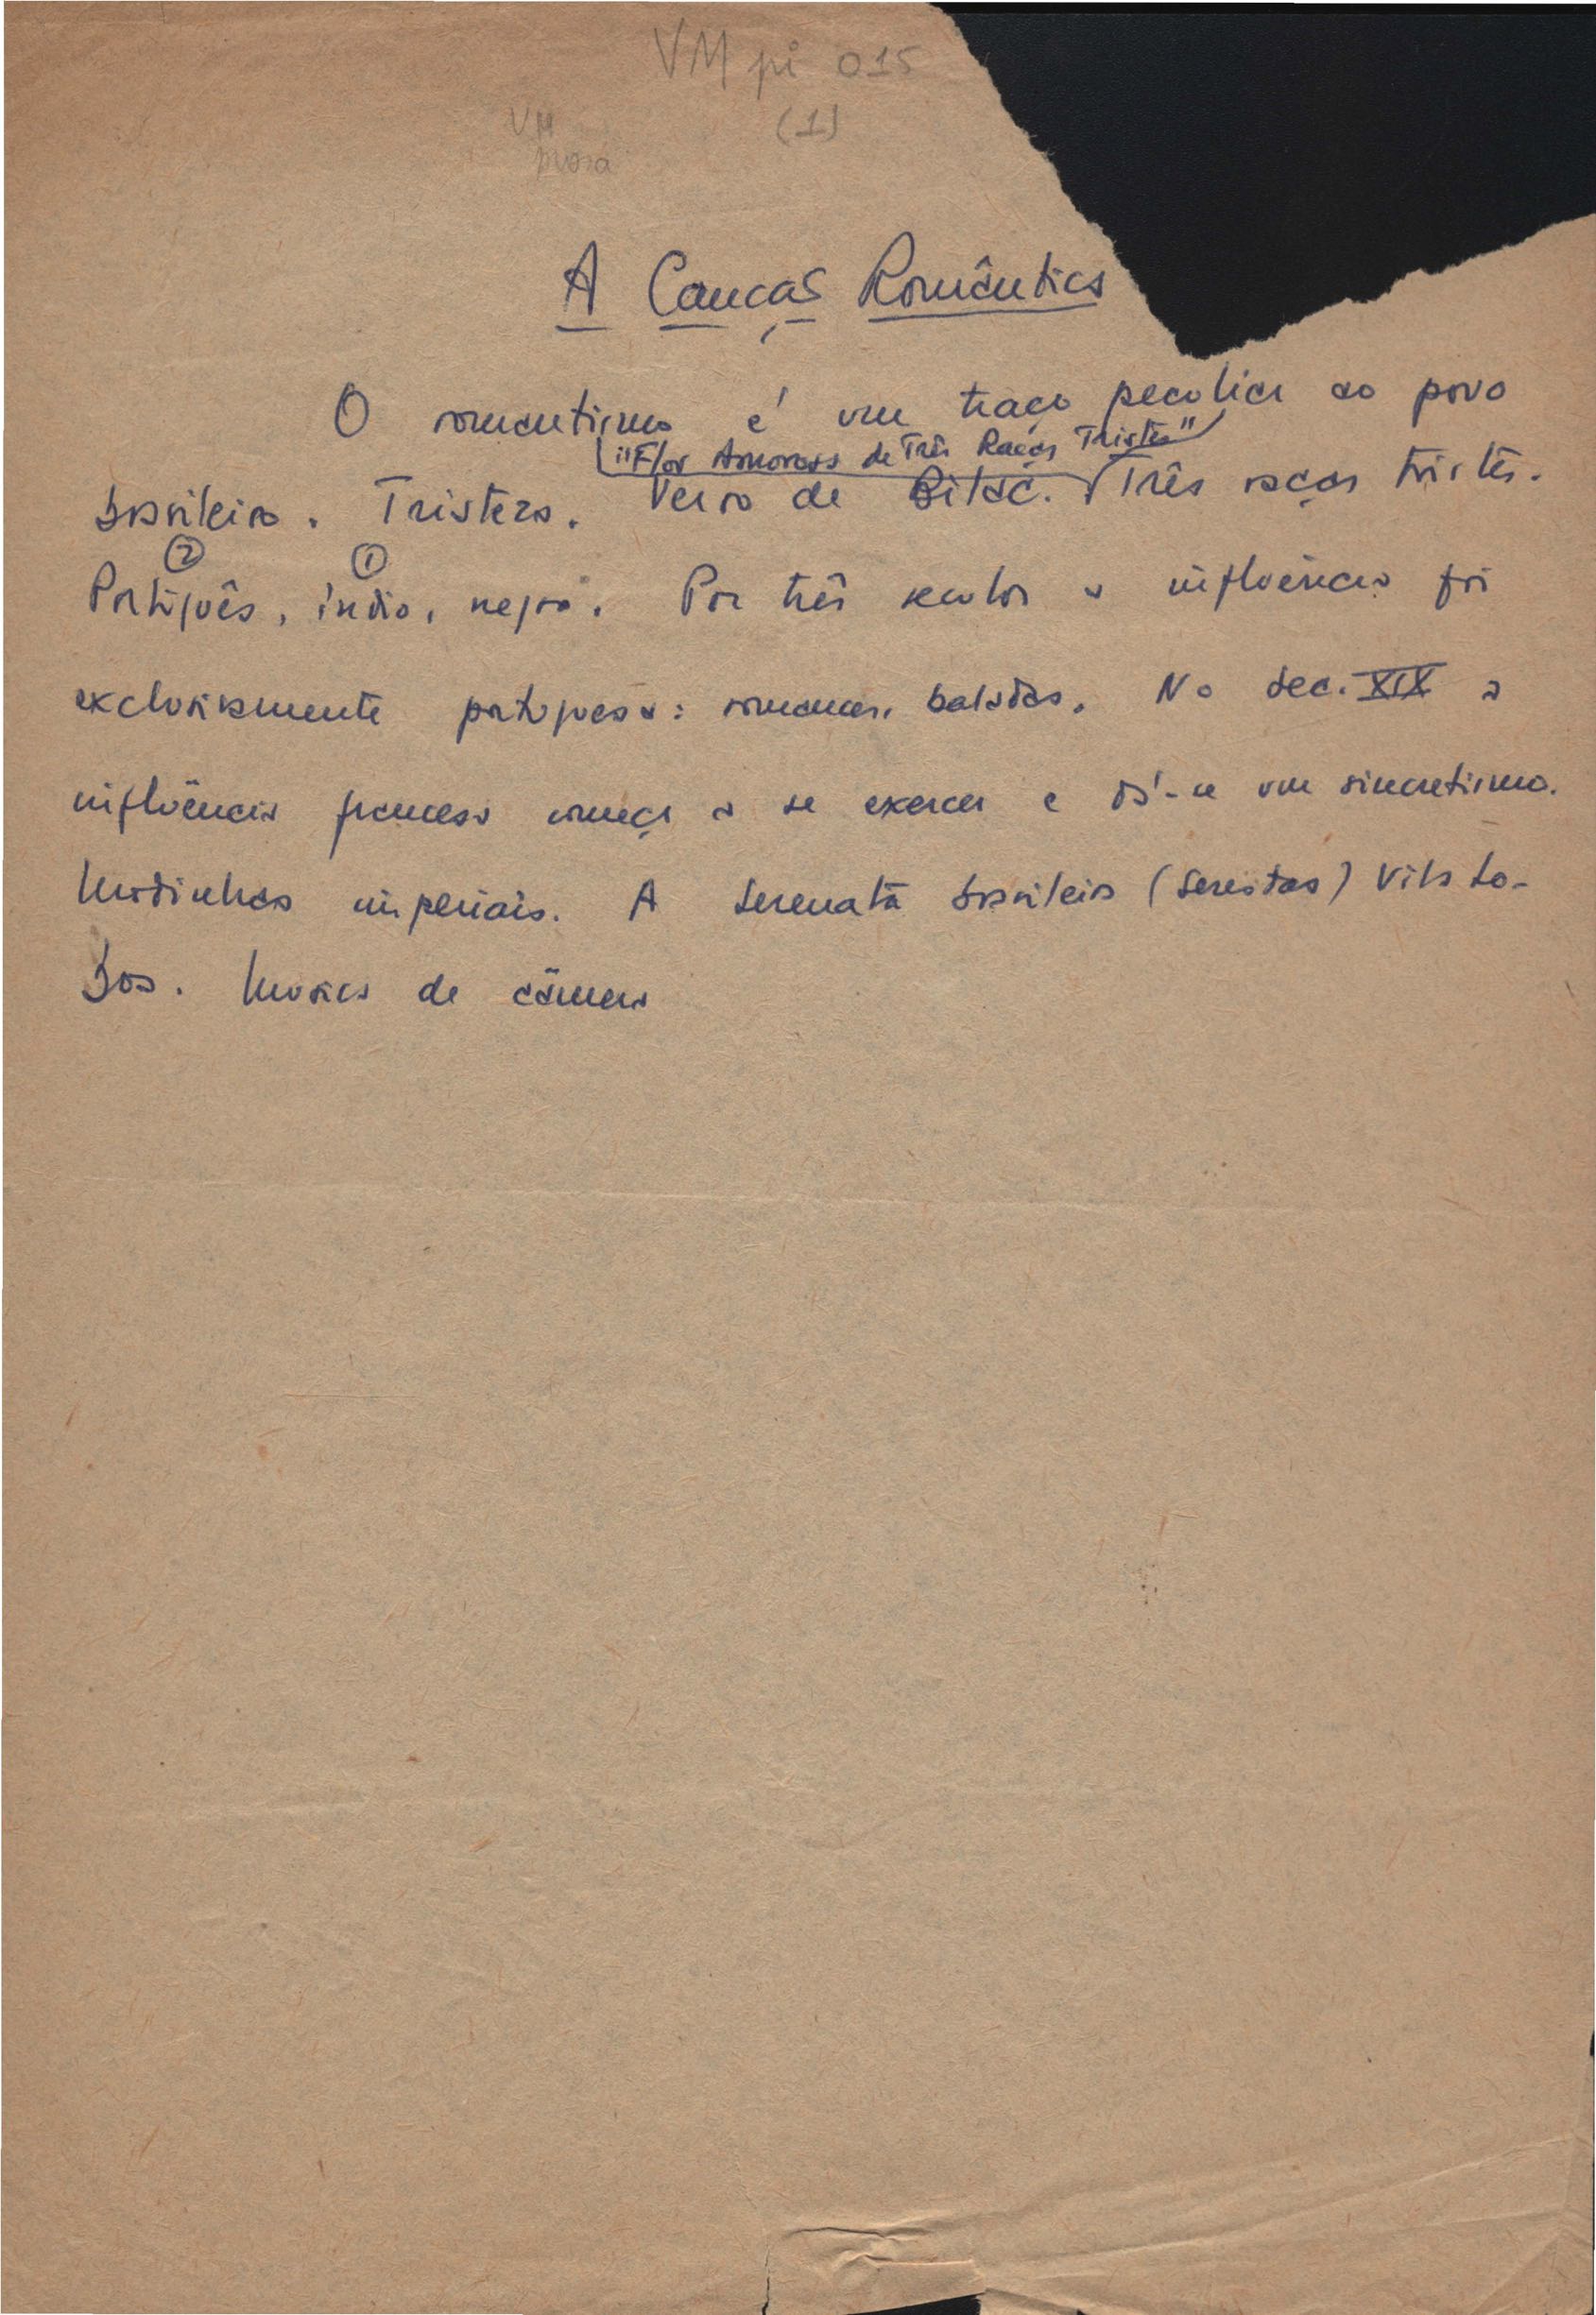 VM pi 015
(1)
VM
prosa
A Canção Romântica
O romantismo é um traço peculiar ao povo
"Flor Amorosa de Três Raças Tristes"
brasileiro. Tristeza. Verso de Bilac. Três raças tristes.
② ①
Português, índio, negro. Por três seculos a influência foi
exclusivamente portuguesa: romances, baladas. No sec. XIX a
influência francesa começa a se exercer e dá-se um sincretismo.
Modinhas imperiais. A serenata brasileira (serestas) Villa Lo-
bos. Musica de câmera